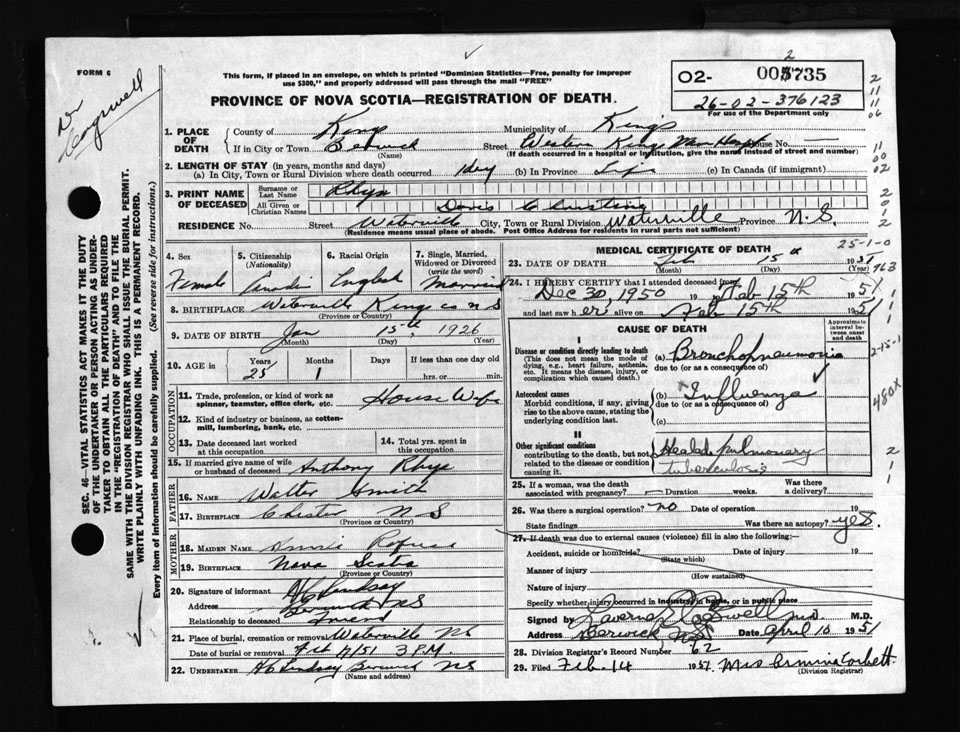 FORM 6
Dr Cogswell
This form, if placed in an envelope, on which is printed "Dominion Statistics—Free, penalty for improper
use $300," and properly addressed will pass through the mail "FREE"
PROVINCE OF NOVA SCOTIA—REGISTRATION OF DEATH.
O2- 005735
2
26-02-376123
For use of the Department only
1. PLACE OF DEATH County of Kings Municipality of Kings
If in City or Town Berwick (Name) Street Western Kings M Hosp House No. —
(If death occurred in a hospital or institution, give the name instead of street and number)
2. LENGTH OF STAY (in years, months and days)
(a) In City, Town or Rural Division where death occurred 1 day (b) In Province Life (c) In Canada (if immigrant)
3. PRINT NAME OF DECEASED Surname or Last Name Rhys
All Given or Christian Names Doris C
RESIDENCE No. Street Waterville City, Town or Rural Division Waterville Province N.S.
(Residence means usual place of abode. Post Office Address for residents in rural parts not sufficient)
4. Sex 5. Citizenship (Nationality) 6. Racial Origin 7. Single, Married, Widowed or Divorced (write the word)
Female English Married
8. BIRTHPLACE Waterville Kings Co N S
(Province or Country)
9. DATE OF BIRTH Jan 15th 1926
(Month) (Day) (Year)
10. AGE in Years Months Days If less than one day old
25 1 hrs. or min.
OCCUPATION
11. Trade, profession, or kind of work as spinner, teamster, office clerk, etc. House Wife
12. Kind of industry or business, as cotton-mill, lumbering, bank, etc.
13. Date deceased last worked at this occupation 14. Total yrs. spent in this occupation
15. If married give name of wife or husband of deceased Anthony Rhys
FATHER
16. NAME Walter Smith
17. BIRTHPLACE Chester N S
(Province or Country)
MOTHER
18. MAIDEN NAME Annie
19. BIRTHPLACE Nova Scotia
(Province or Country)
20. Signature of informant Lindsay
Address Berwick NS
Relationship to deceased friend
21. Place of burial, cremation or removal Waterville NS
Date of burial or removal Feb 17/51 3 P.M.
22. UNDERTAKER Lindsay Berwick NS
(Name and address)
MEDICAL CERTIFICATE OF DEATH
25-1-0
23. DATE OF DEATH Feb 15th 1951
(Month) (Day) (Year)
963
24. I HEREBY CERTIFY that I attended deceased from
Dec 30, 1950 19 to Feb 15th 1951
and last saw her alive on Feb 15th 1951
CAUSE OF DEATH
Approximate interval between onset and death
I
Disease or condition directly leading to death (a) Bronchopneumonia
(This does not mean the mode of dying, e.g., heart failure, asthenia, etc. It means the disease, injury, or complication which caused death.)
due to (or as a consequence of)
Antecedent causes (b) Influenza
Morbid conditions, if any, giving rise to the above cause, stating the underlying condition last.
due to (or as a consequence of)
(c)
2-15-1
480X
II
Other significant conditions contributing to the death, but not related to the disease or condition causing it. Healed pulmonary
tuberculosis
25. If a woman, was the death associated with pregnancy? — Duration weeks. Was there a delivery?
26. Was there a surgical operation? no Date of operation 19
State findings Was there an autopsy? yes.
27. If death was due to external causes (violence) fill in also the following:—
Accident, suicide or homicide? Date of injury 19
(State which)
Manner of injury
(How sustained)
Nature of injury
Specify whether injury occurred in industry, in home, or in public place
Signed by Cogswell M.D. M.D.
Address Berwick NS Date April 10 1951
28. Division Registrar's Record Number 62
29. Filed Feb. 14 1951 Mrs Armina Corbett
(Division Registrar)
SEC. 46—VITAL STATISTICS ACT MAKES IT THE DUTY
OF THE UNDERTAKER OR PERSON ACTING AS UNDER-
TAKER TO OBTAIN ALL THE PARTICULARS REQUIRED
IN THE "REGISTRATION OF DEATH" AND TO FILE THE
SAME WITH THE DIVISION REGISTRAR WHO SHALL ISSUE THE BURIAL PERMIT.
WRITE PLAINLY WITH UNFADING INK. THIS IS A PERMANENT RECORD.
Every item of information should be carefully supplied. (See reverse side for instructions.)